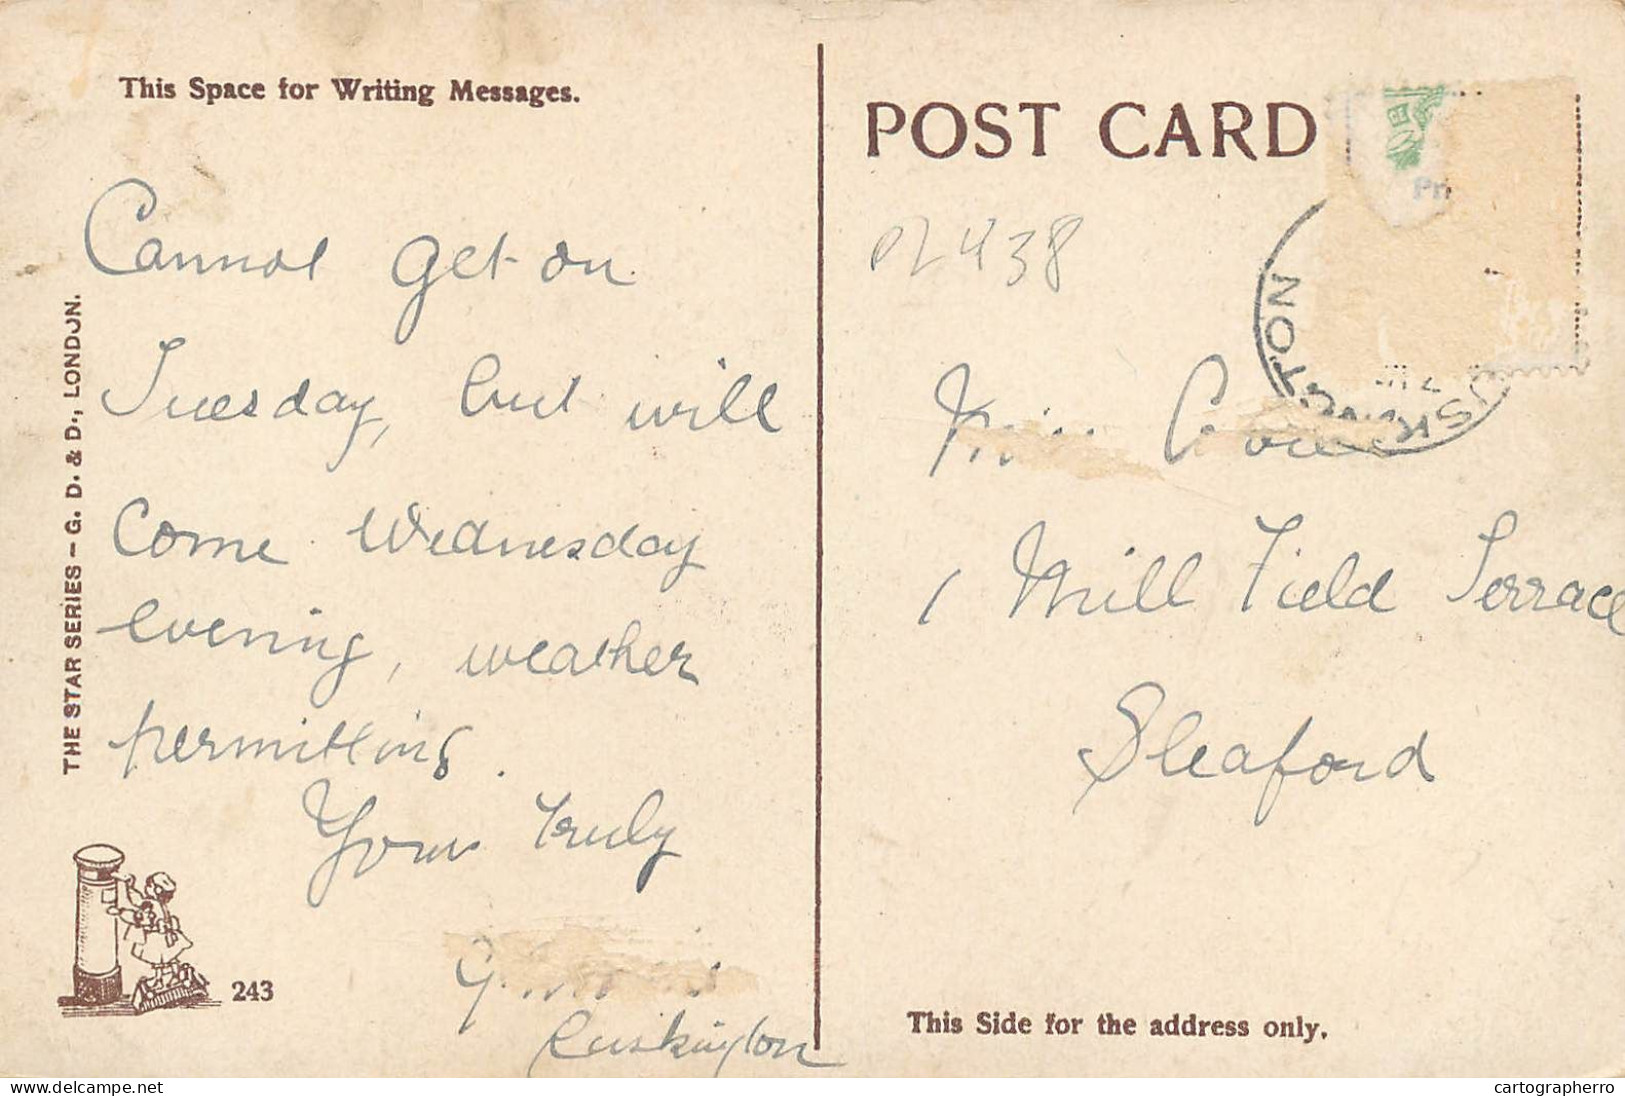 This Space for Writing Messages.
Cannot get on
Tuesday, but will
come Wednesday
evening, weather
permitting.
Yours truly
Ruskington
THE STAR SERIES – G. D. & D., LONDON.
243
POST CARD
Pri
SKINGTON
02438
Miss
1 Mill Field Terrace
Sleaford
This Side for the address only.
delcampe.net
cartographerro